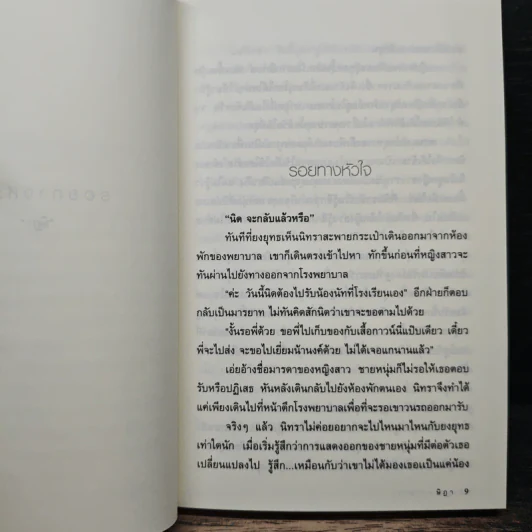 รอยทางหัวใจ
“นิด จะกลับแล้วหรือ”
ทันทีที่ยงยุทธเห็นนิทราสะพายกระเป๋าเดินออกมาจากห้อง
พักของพยาบาล เขาก็เดินตรงเข้าไปหา ทักขึ้นก่อนที่หญิงสาวจะ
ทันผ่านไปยังทางออกจากโรงพยาบาล
“ค่ะ วันนี้นิดต้องไปรับน้องนัทที่โรงเรียนเอง” อีกฝ่ายก็ตอบ
กลับเป็นมารยาท ไม่ทันคิดสักนิดว่าเขาจะขอตามไปด้วย
“งั้นรอพี่ด้วย ขอพี่ไปเก็บของกับเสื้อกาวน์นี่แป๊บเดียว เดี๋ยว
พี่จะไปส่ง จะขอไปเยี่ยมน้านงค์ด้วย ไม่ได้เจอแกนานแล้ว”
เอ่ยอ้างชื่อมารดาของหญิงสาว ชายหนุ่มก็ไม่รอให้เธอตอบ
รับหรือปฏิเสธ หันหลังเดินกลับไปยังห้องพักตนเอง นิทราจึงทำได้
แค่เพียงเดินไปที่หน้าตึกโรงพยาบาลเพื่อที่จะรอเขาวนรถออกมารับ
จริงๆ แล้ว นิทราไม่ค่อยอยากจะไปไหนมาไหนกับยงยุทธ
เท่าใดนัก เมื่อเริ่มรู้สึกว่าการแสดงออกของชายหนุ่มที่มีต่อตัวเธอ
เปลี่ยนแปลงไป รู้สึก...เหมือนกับว่าเขาไม่ได้มองเธอเป็นแค่น้อง
9